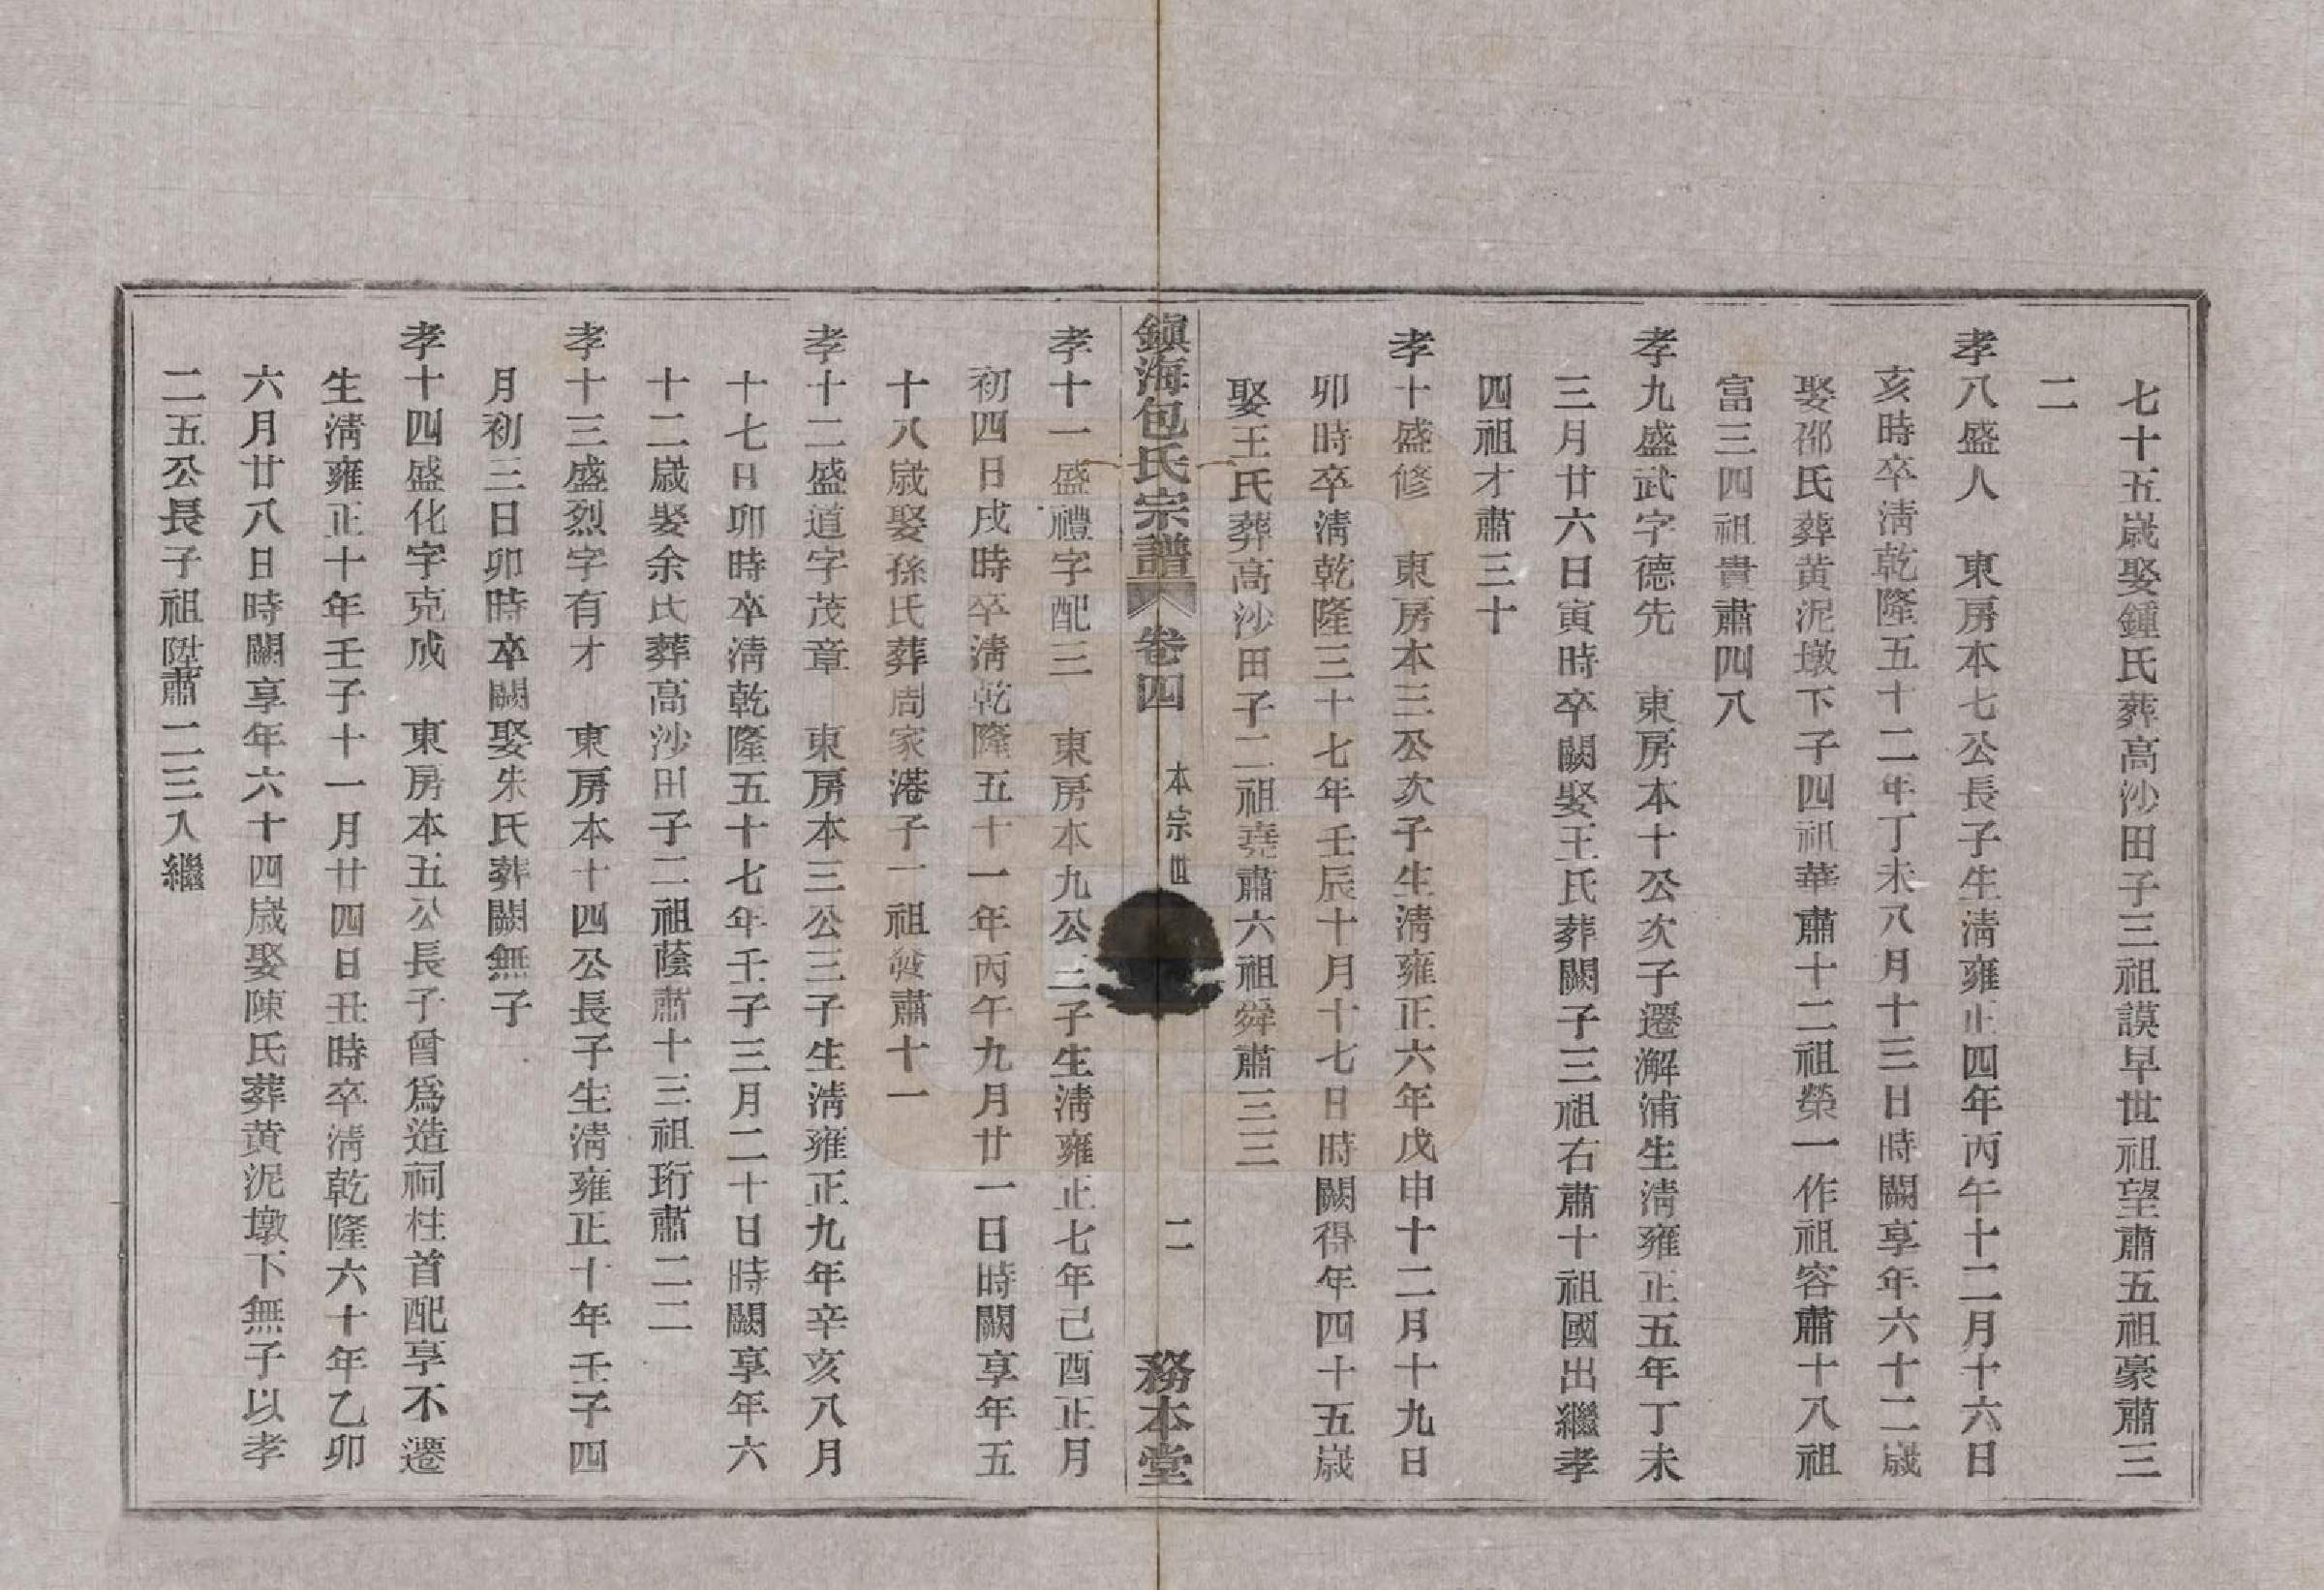 七十五歲娶鍾氏葬高沙田子三祖謨早世祖望肅五祖豪肅三
二
孝八盛人　東房本七公長子生淸雍正四年丙午十二月十六日
亥時卒淸乾隆五十二年丁未八月十三日時闕享年六十二歲
娶邵氏葬黃泥墩下子四祖華肅十二祖榮一作祖容肅十八祖
富三四祖貴肅四八
孝九盛武字德先　東房本十公次子遷澥浦生淸雍正五年丁未
三月廿六日寅時卒闕娶王氏葬闕子三祖右肅十祖國出繼孝
四祖才肅三十
孝十盛修　東房本三公次子生淸雍正六年戊申十二月十九日
卯時卒淸乾隆三十七年壬辰十月十七日時闕得年四十五歲
娶王氏葬高沙田子二祖堯肅六祖舜肅三三
鎭海包氏宗譜　卷四　本宗世　二　務本堂
孝十一盛禮字配三　東房本九公三子生淸雍正七年己酉正月
初四日戌時卒淸乾隆五十一年丙午九月廿一日時闕享年五
十八歲娶孫氏葬周家港子一祖發肅十一
孝十二盛道字茂章　東房本三公三子生淸雍正九年辛亥八月
十七日卯時卒淸乾隆五十七年壬子三月二十日時闕享年六
十二歲娶余氏葬高沙田子二祖蔭肅十三祖珩肅二二
孝十三盛烈字有才　東房本十四公長子生淸雍正十年壬子四
月初三日卯時卒闕娶朱氏葬闕無子
孝十四盛化字克成　東房本五公長子曾爲造祠柱首配享不遷
生淸雍正十年壬子十一月廿四日丑時卒淸乾隆六十年乙卯
六月廿八日時闕享年六十四歲娶陳氏葬黃泥墩下無子以孝
二五公長子祖陞肅二三入繼